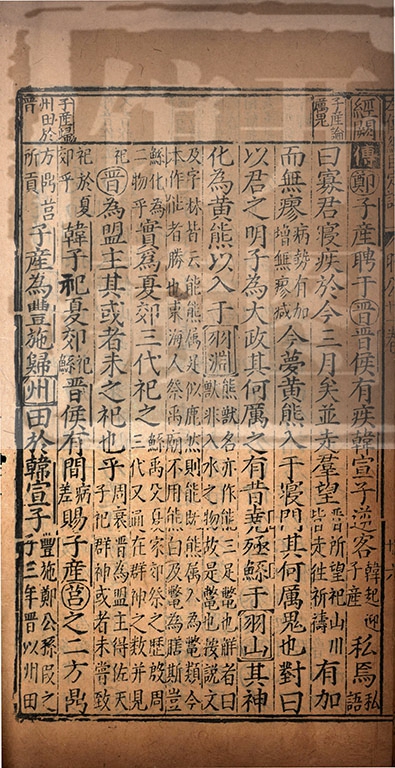 經闕傳鄭子産聘于晋晋侯有疾韓宣子逆客韓起迎子産私焉私語
子産論厲鬼
曰寡君寢疾於今三月矣並走羣望晋所望祀山川皆走往祈禱有加
而無瘳病勢有加增無瘳減今夢黄熊入于寢門其何厲鬼也對曰
以君之明子為大政其何厲之有昔堯殛鯀于羽山其神
化為黄熊以入于羽淵熊獸名亦作能三足鼈也解者曰獸非入水之物故是鼈也按説文
及字林皆云能熊屬足似鹿然則能既熊屬又為鼈類今
本作能者勝也東海人祭禹廟不用熊白及鼈為膳豈
鯀化為二物乎實為夏郊三代祀之鯀禹父夏家郊祭之歷殷周三代又通在群神之數并見
祀晋為盟主其或者未之祀也乎周衰晋為盟主得佐天子祀群神或者未嘗致
祀於夏郊乎韓子祀夏郊祀鯀晋侯有間病差賜子産莒之二方鼎
子産歸州田於晋
方鼎莒所貢子産為豐施歸州田於韓宣子豐施鄭公孫段之子三年晋以州田